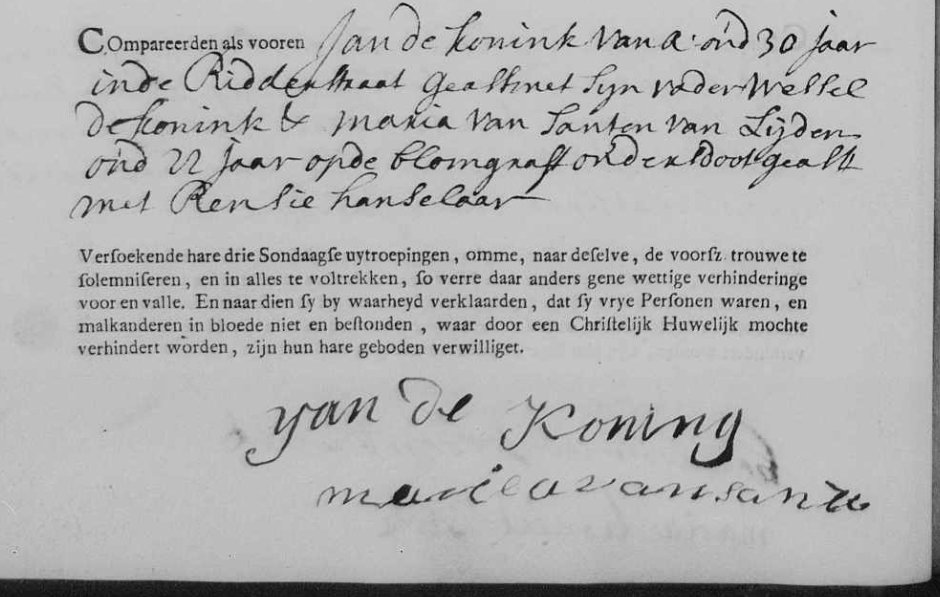 COmpareerden als vooren Jan de Konink van A. oud 30 Jaar
inde Ridderstraat geast met syn vader Wessel
de Konink & maria van Santen van Lijden
oud 22 Jaar opde blomgraft ouders doot geast
met Rensie hanselaar
Versoekende hare drie Sondaagse uytroepingen, omme, naar deselve, de voorsz. trouwe te
solemniseren, en in alles te voltrekken, so verre daar anders gene wettige verhinderinge
voor en valle. En naar dien sy by waarheyd verklaarden, dat sy vrye Personen waren, en
malkanderen in bloede niet en bestonden, waar door een Christelijk Huwelijk mochte
verhindert worden, zijn hun hare geboden verwilliget.
yan de Koning
mariea van sante